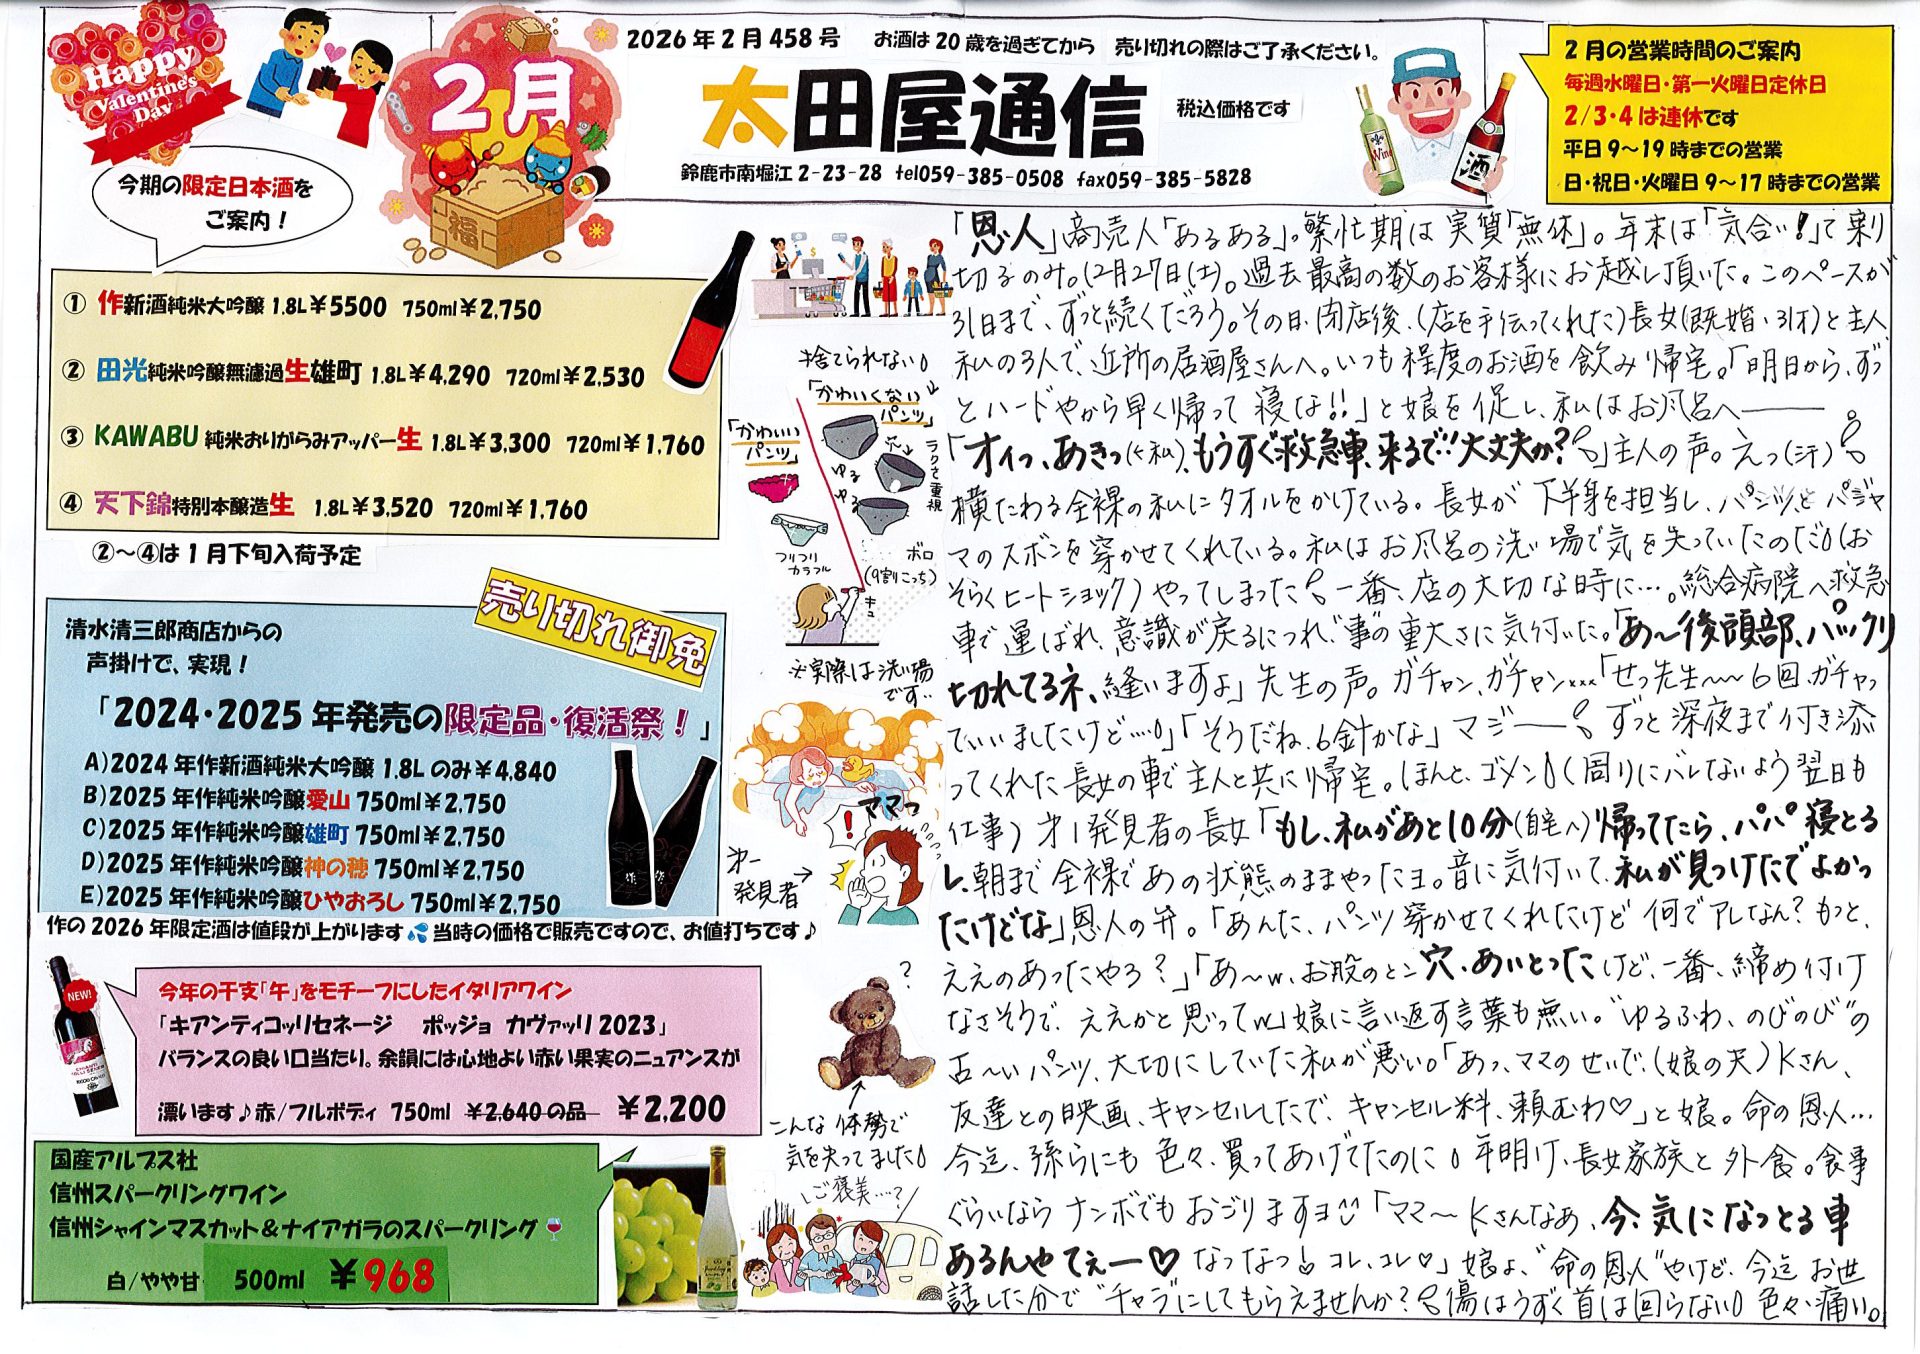 Happy
Valentine's
Day
2月
福
2026年2月458号 お酒は20歳を過ぎてから 売り切れの際はご了承ください。
太田屋通信
税込価格です
鈴鹿市南堀江2-23-28 tel059-385-0508 fax059-385-5828
Wine
酒
2月の営業時間のご案内
毎週水曜日・第一火曜日定休日
2/3・4は連休です
平日9~19時までの営業
日・祝日・火曜日9~17時までの営業
今期の限定日本酒を
ご案内!
① 作新酒純米大吟醸 1.8L¥5500 750ml¥2,750
② 田光純米吟醸無濾過生雄町 1.8L¥4,290 720ml¥2,530
③ KAWABU純米おりがらみアッパー生 1.8L¥3,300 720ml¥1,760
④ 天下錦特別本醸造生 1.8L¥3,520 720ml¥1,760
②~④は1月下旬入荷予定
売り切れ御免
清水清三郎商店からの
声掛けで、実現!
「2024・2025年発売の限定品・復活祭!」
A)2024年作新酒純米大吟醸1.8Lのみ¥4,840
B)2025年作純米吟醸愛山750ml¥2,750
C)2025年作純米吟醸雄町750ml¥2,750
D)2025年作純米吟醸神の穂750ml¥2,750
E)2025年作純米吟醸ひやおろし750ml¥2,750
作の2026年限定酒は値段が上がります💦当時の価格で販売ですので、お値打ちです♪
NEW!
今年の干支「午」をモチーフにしたイタリアワイン
「キアンティコッリセネージ ポッジョ カヴァッリ2023」
バランスの良い口当たり。余韻には心地よい赤い果実のニュアンスが
漂います♪赤/フルボディ 750ml ¥2,640の品 ¥2,200
国産アルプス社
信州スパークリングワイン
信州シャインマスカット&ナイアガラのスパークリング🍷
白/やや甘 500ml ¥968
捨てられない
「かわいくないパンツ」
「かわいいパンツ」
ゆる
ゆる
穴
ラクさ重視
フリフリ
カラフル
ボロ
(9割こっち)
キュ
※実際は洗い場です‥
ママっ
!
第一
発見者→
?
こんな体勢で
気を失ってました
ご褒美……?
「恩人」商売人「あるある」。繁忙期は実質「無休」。年末は「気合い!」で乗り
切るのみ。12月27日(土)。過去最高の数のお客様にお越し頂いた。このペースが
31日まで、ずっと続くだろう。その日、閉店後、(店を手伝ってくれた)長女(既婚・31才)と主人
私の3人で、近所の居酒屋さんへ。いつも程度のお酒を飲み帰宅。「明日から、ずっ
とハードやから早く帰って寝な!!」と娘を促し、私はお風呂へ――
「オイっ、あきっ(←私)、もうすぐ救急車、来るで!!大丈夫か?」主人の声。えっ(汗)
横たわる全裸の私にタオルをかけている。長女が下半身を担当し、パンツとパジャ
マのズボンを穿かせてくれている。私はお風呂の洗い場で気を失っていたのだ(お
そらくヒートショック)やってしまった 一番、店の大切な時に…。総合病院へ救急
車で運ばれ、意識が戻るにつれ“事”の重大さに気付いた。「あ~後頭部、パックリ
切れてるネ、縫いますよ」先生の声。ガチャン、ガチャン×××「せっ先生~~6回、ガチャっ
ていいましたけど…」「そうだね、6針かな」マジ―― ずっと深夜まで付き添
ってくれた長女の車で主人と共に帰宅。ほんと、ゴメン(周りにバレないよう翌日も
仕事)才1発見者の長女「もし、私があと10分(自宅へ)帰ってたら、パパ寝とる
し、朝まで全裸であの状態のままやったヨ。音に気付いて、私が見つけたでよかっ
たけどな」恩人の弁。「あんた、パンツ穿かせてくれたけど何でアレなん?もっと、
ええのあったやろ?」「あ~w、お股のとこ穴、あいとったけど、一番、締め付け
なさそうで、ええかと思ってw」娘に言い返す言葉も無い。“ゆるふわ、のびのび”の
古~いパンツ、大切にしていた私が悪い。「あっ、ママのせいで、(娘の夫)Kさん、
友達との映画、キャンセルしたで、キャンセル料、頼むわ♡」と娘。命の恩人…
今迄、孫らにも色々、買ってあげてたのに 年明け、長女家族と外食。食事
ぐらいならナンボでもおごりますヨ 「ママ~Kさんなあ、今、気になっとる車
あるんやてぇー♡なっなっ コレ、コレ♡」娘よ、“命の恩人”やけど、今迄お世
話した分で“チャラ”にしてもらえませんか? 傷はうずく首は回らない 色々、痛い。